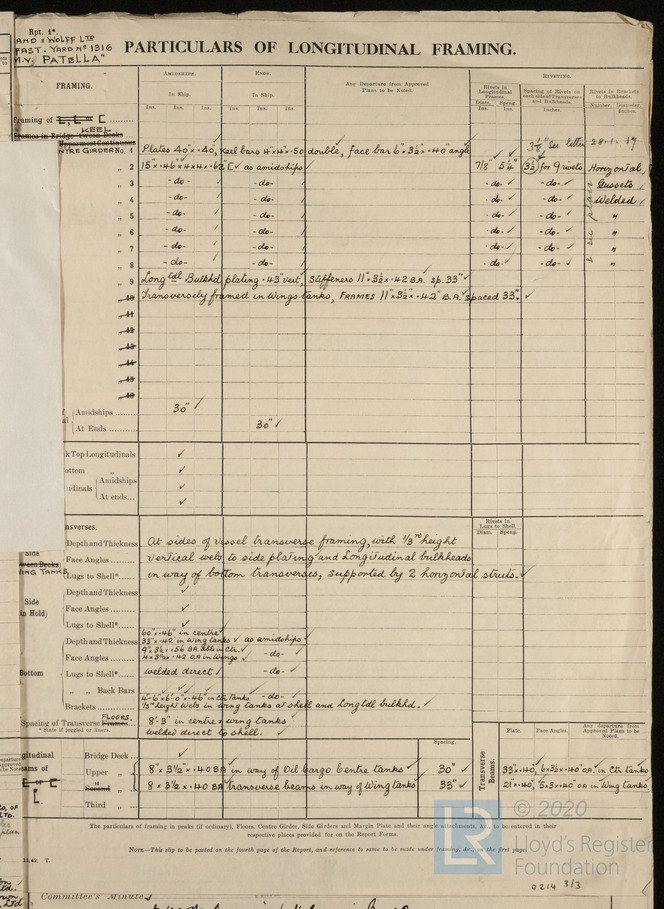 Rpt. 1*.
AND & WOLFF LTD
FAST. YARD Nº 1316
M.V. "PATELLA"
PARTICULARS OF LONGITUDINAL FRAMING.
FRAMING.
AMIDSHIPS.
ENDS.
Any Departure from Approved Plans to be Noted.
RIVETING.
In Ship.
In Ship.
Rivets in Longitudinal Frames.
Spacing of Rivets on each side of Transverses and Bulkheads.
Rivets in Brackets to Bulkheads.
Ins. Ins. Ins. Ins. Ins. Ins.
Diam. Spcng.
Ins. Ins.
Inches.
Number. Diameter.
Inches.
Framing of
Frames in Bridge 'tween Decks
KEEL
Uppermost Continuous
NTRE GIRDER No. 1 Plates 40" x .40, Keel bars 4" x 4" x .50 double, face bar 6" x 3½" x .40" angle 3⅛ See letter 28.1.19
„ 2 15" x .46" x 4 x 4 x .62" [ ✓ as amidships ✓ 7/8" 5¼" (3½) for 9 rivets Horizontal
„ 3 -do- ✓ -do- -do- ✓ -do- ✓ Gussets
„ 4 -do- ✓ -do- -do- ✓ -do- ✓ Welded ✓
„ 5 -do- ✓ -do- -do- ✓ -do- ✓ "
„ 6 -do- ✓ -do- -do- ✓ -do- ✓ "
„ 7 -do- ✓ -do- -do- ✓ -do- ✓ "
„ 8 -do- ✓ -do- -do- ✓ -do- ✓ "
„ 9 Longtdl Bulkhd plating .43" vert, stiffeners 11" x 3½" x .42 B.A. sp. 33" ✓
„ 10 Transversely framed in Wings tanks, FRAMES 11" x 3½" x .42" B.A. spaced 33". ✓
„ 11
„ 12
„ 13
„ 14
„ 15
„ 16
Amidships .......... 30" ✓
At Ends .......... 30" ✓
k Top Longitudinals ✓
ottom „ ✓
udinals
Amidships ✓
At ends... ✓
nsverses.
Rivets in Lugs to Shell.
Diam. Spcng.
Side
tween Decks)
WING TANKS
Depth and Thickness At sides of vessel transverse framing, with 1/3rd height
Face Angles ....... vertical webs to side plating and Longitudinal bulkheads
Lugs to Shell*...... in way of bottom transverses, supported by 2 horizontal struts. ✓
Side
in Hold)
Depth and Thickness ✓
Face Angles ....... ✓
Lugs to Shell*...... ✓
Bottom
60" x .46" in centre
Depth and Thickness 33" x .42 in wing tanks ✓ as amidships ✓
9" x 3½ x .56 BA
Face Angles ....... 4 x 3½ x .42 OA in Wings ✓ -do- ✓
Lugs to Shell*...... welded direct ✓ -do- ✓
„ „ Back Bars
-do- ✓
Brackets .......... 1/3rd height webs in wing tanks at shell and Longtdl bulkhd. ✓
FLOORS.
Spacing of Transverse Frames... 8'-3" in centre & wing tanks ✓
* State if joggled or liners.
welded direct to shell. ✓
Spacing.
Plate.
Face Angles.
Any departure from Approved Plans to be Noted.
gitudinal
eams of
Bridge Deck ... ✓
Upper „ 8" x 3½" x .40 BA in way of Oil Cargo Centre tanks 30" ✓
Second „ 8 x 3½ x .40 BA transverse beams in way of Wing tanks 33" ✓
Third „
Transverse Beams.
33" x .40, 6 x 3½ x .40" OA. in Ctr tanks
21" x .40, 5 x 3 x .40" OA in Wing tanks
The particulars of framing in peaks (if ordinary), Floors, Centre Girder, Side Girders and Margin Plate and their angle attachments, &c., to be entered in their
respective places provided for on the Report Forms.
NOTE.—This slip to be posted on the fourth page of the Report, and reference to same to be made under framing, &c., on the first page.
11.42. T.
© 2020
LR
Lloyd's Register
Foundation
0214 3/3
Committee's Minute